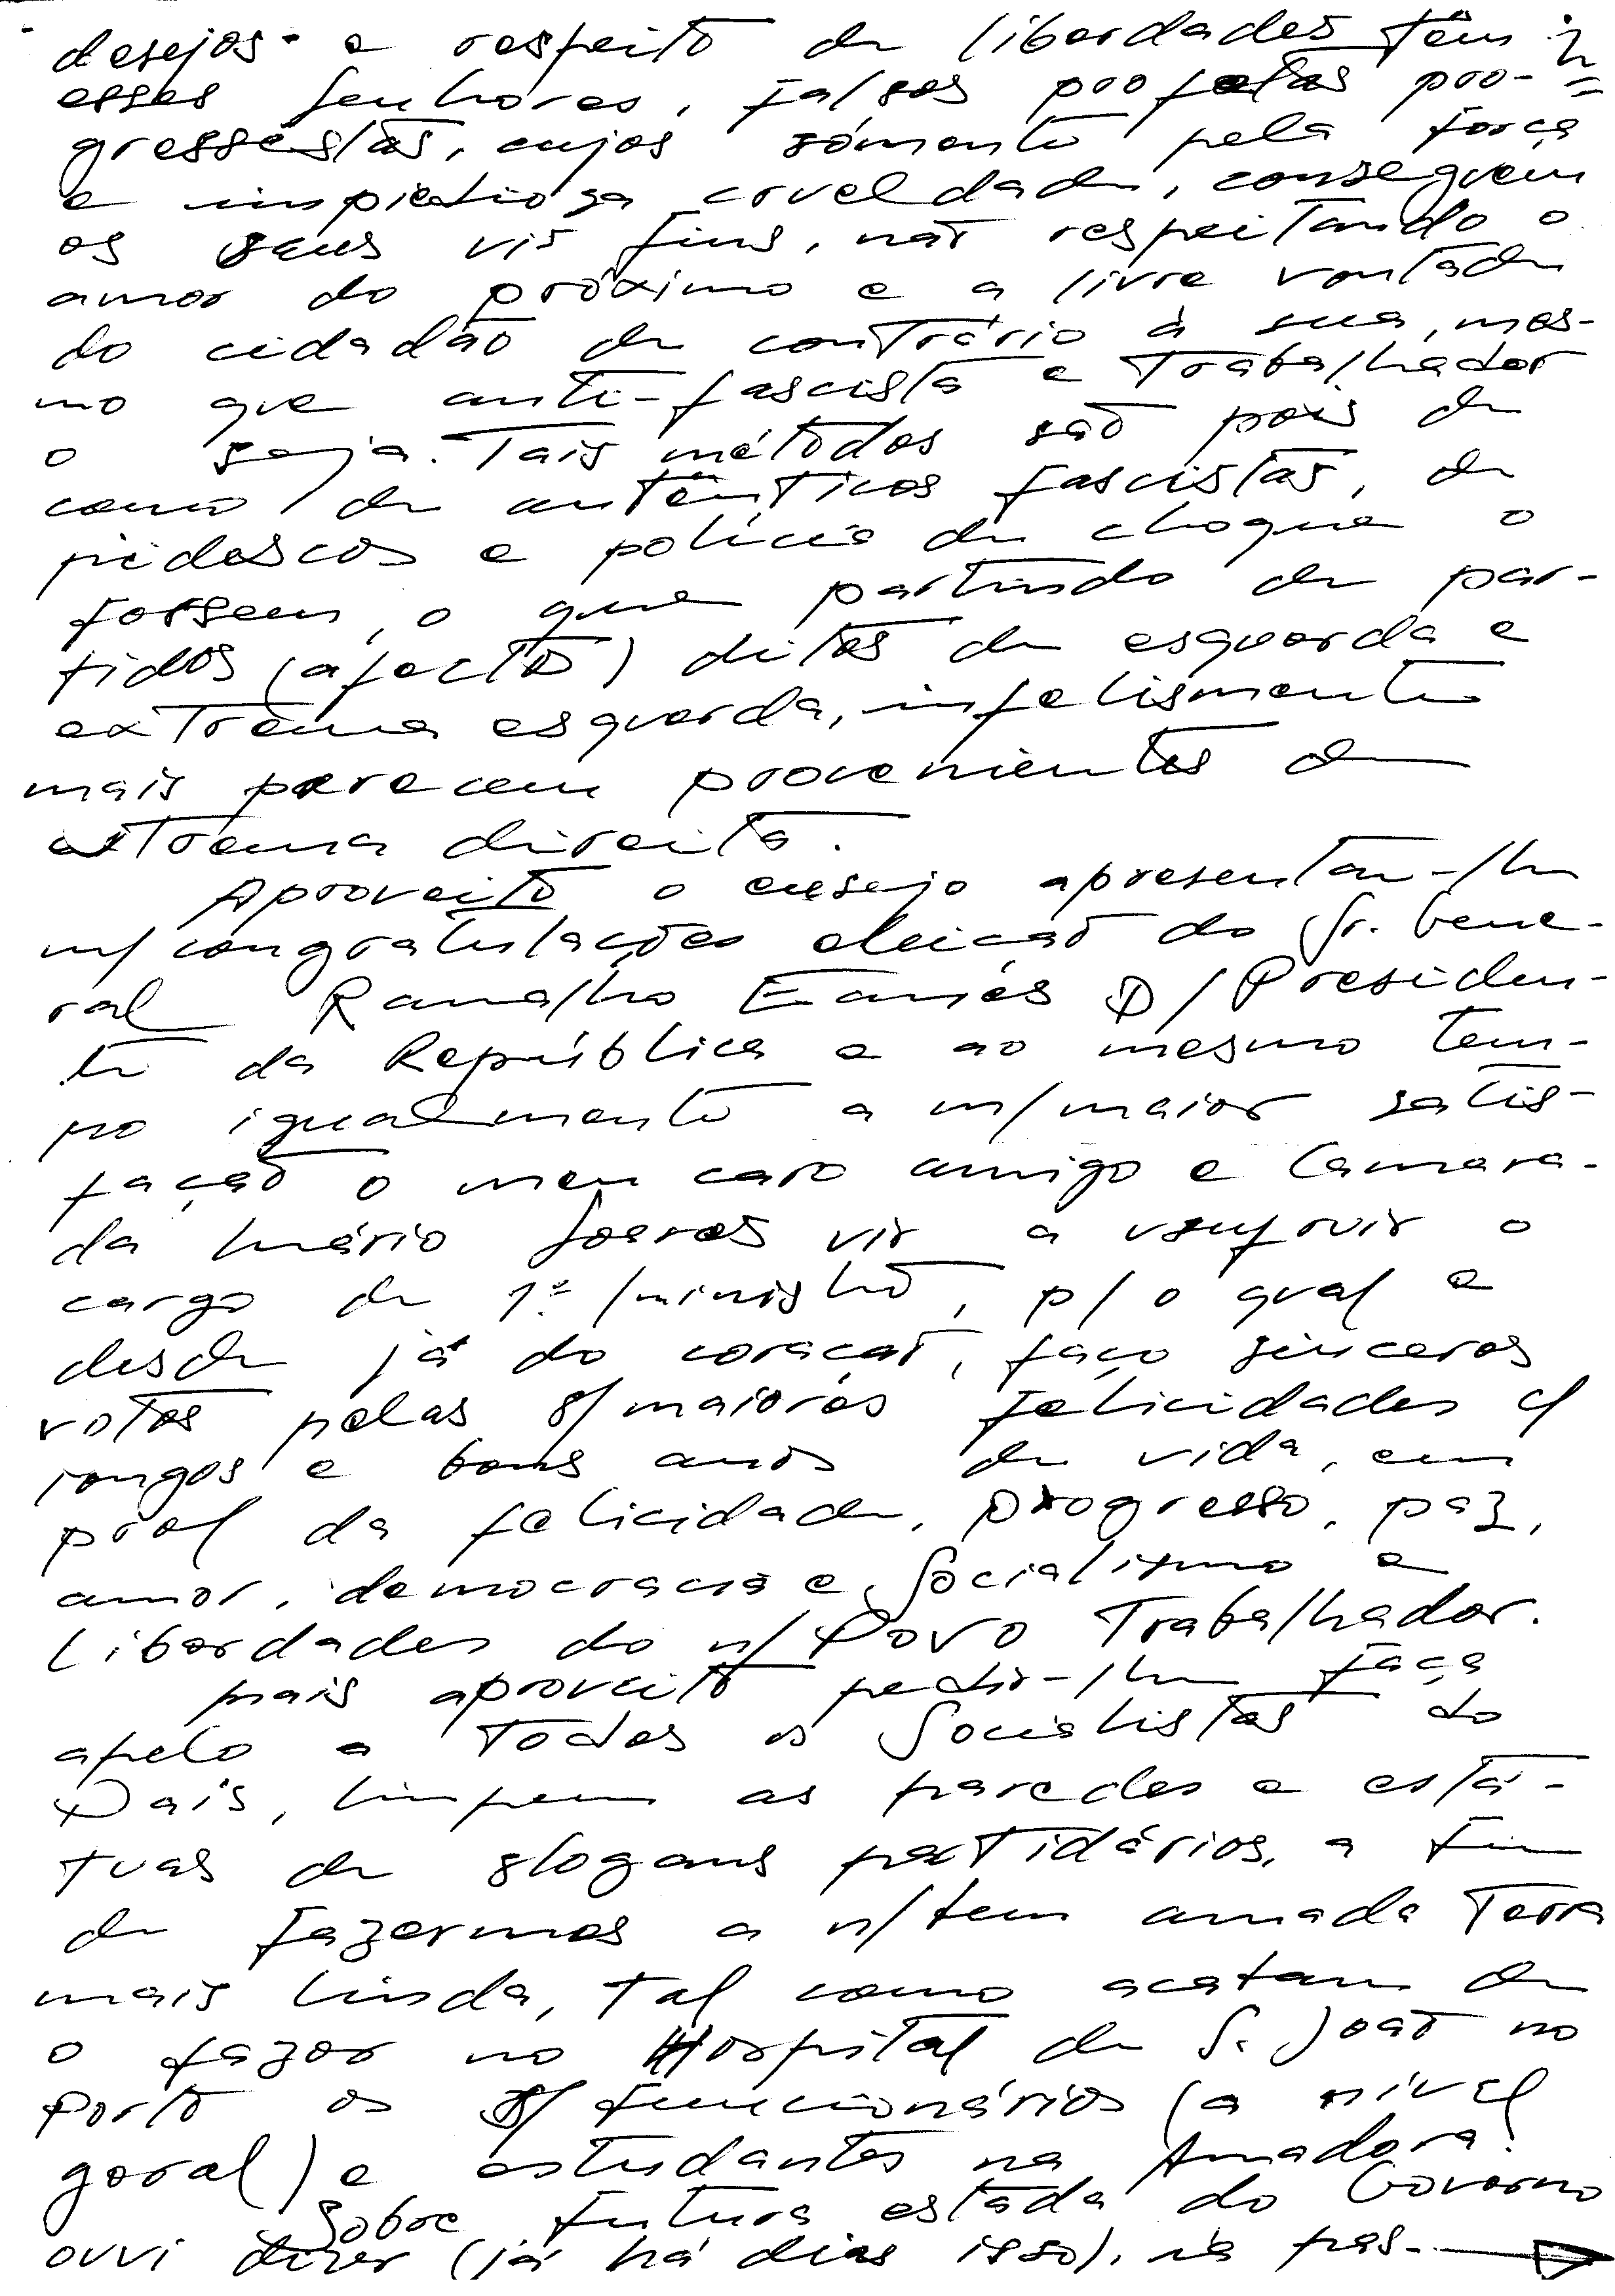 desejos e respeito de liberdades têm
esses senhores, falsos profetas pro-
gressistas, cujos sómente pela força
e impiedosa crueldade, conseguem
os seus vis fins, não respeitando o
amor do próximo e a livre vontade
do cidadão de contrário à sua, mes-
mo que anti-fascista e Trabalhador
o seja. Tais métodos são pois de
como / de autênticos fascistas, de
pidescos e polícia de choque o
fossem, o que partindo de par-
tidos (afecto) ditos de esquerda e
extrema esquerda, infelismente
mais parecem provenientes de
extrema direita.
Aproveito o ensejo apresentar-lhe
m/ congratulações eleição do Sr. Gene-
ral Ramalho Eanes p/ Presiden-
te da República e ao mesmo tem-
po igualmente a m/ maior satis-
fação o meu caro amigo e Camara-
da Mário Soares vir a usufruir o
cargo de 1º /ministro, p/ o qual e
desde já do coração, faço sinceros
votos pelas s/ maiores felicidades c/
longos e bons anos de vida, em
prol da felicidade, progresso, paz,
amor, democracia e Socialismo e
Liberdades do n/ Povo Trabalhador.
Mais aproveito pedir-lhe faça
apelo a Todos os Socialistas do
País, limpem as paredes e está-
tuas de slogans partidários, a fim
de fazermos a n/ bem amada Terra
mais linda, Tal como acabam de
o fazer no Hospital de S. João no
Porto os s/ funcionários (a nível
geral) e estudantes na Amadora!
Sobre futura estada do Governo
ouvi dizer (já há dias isso), na pas-